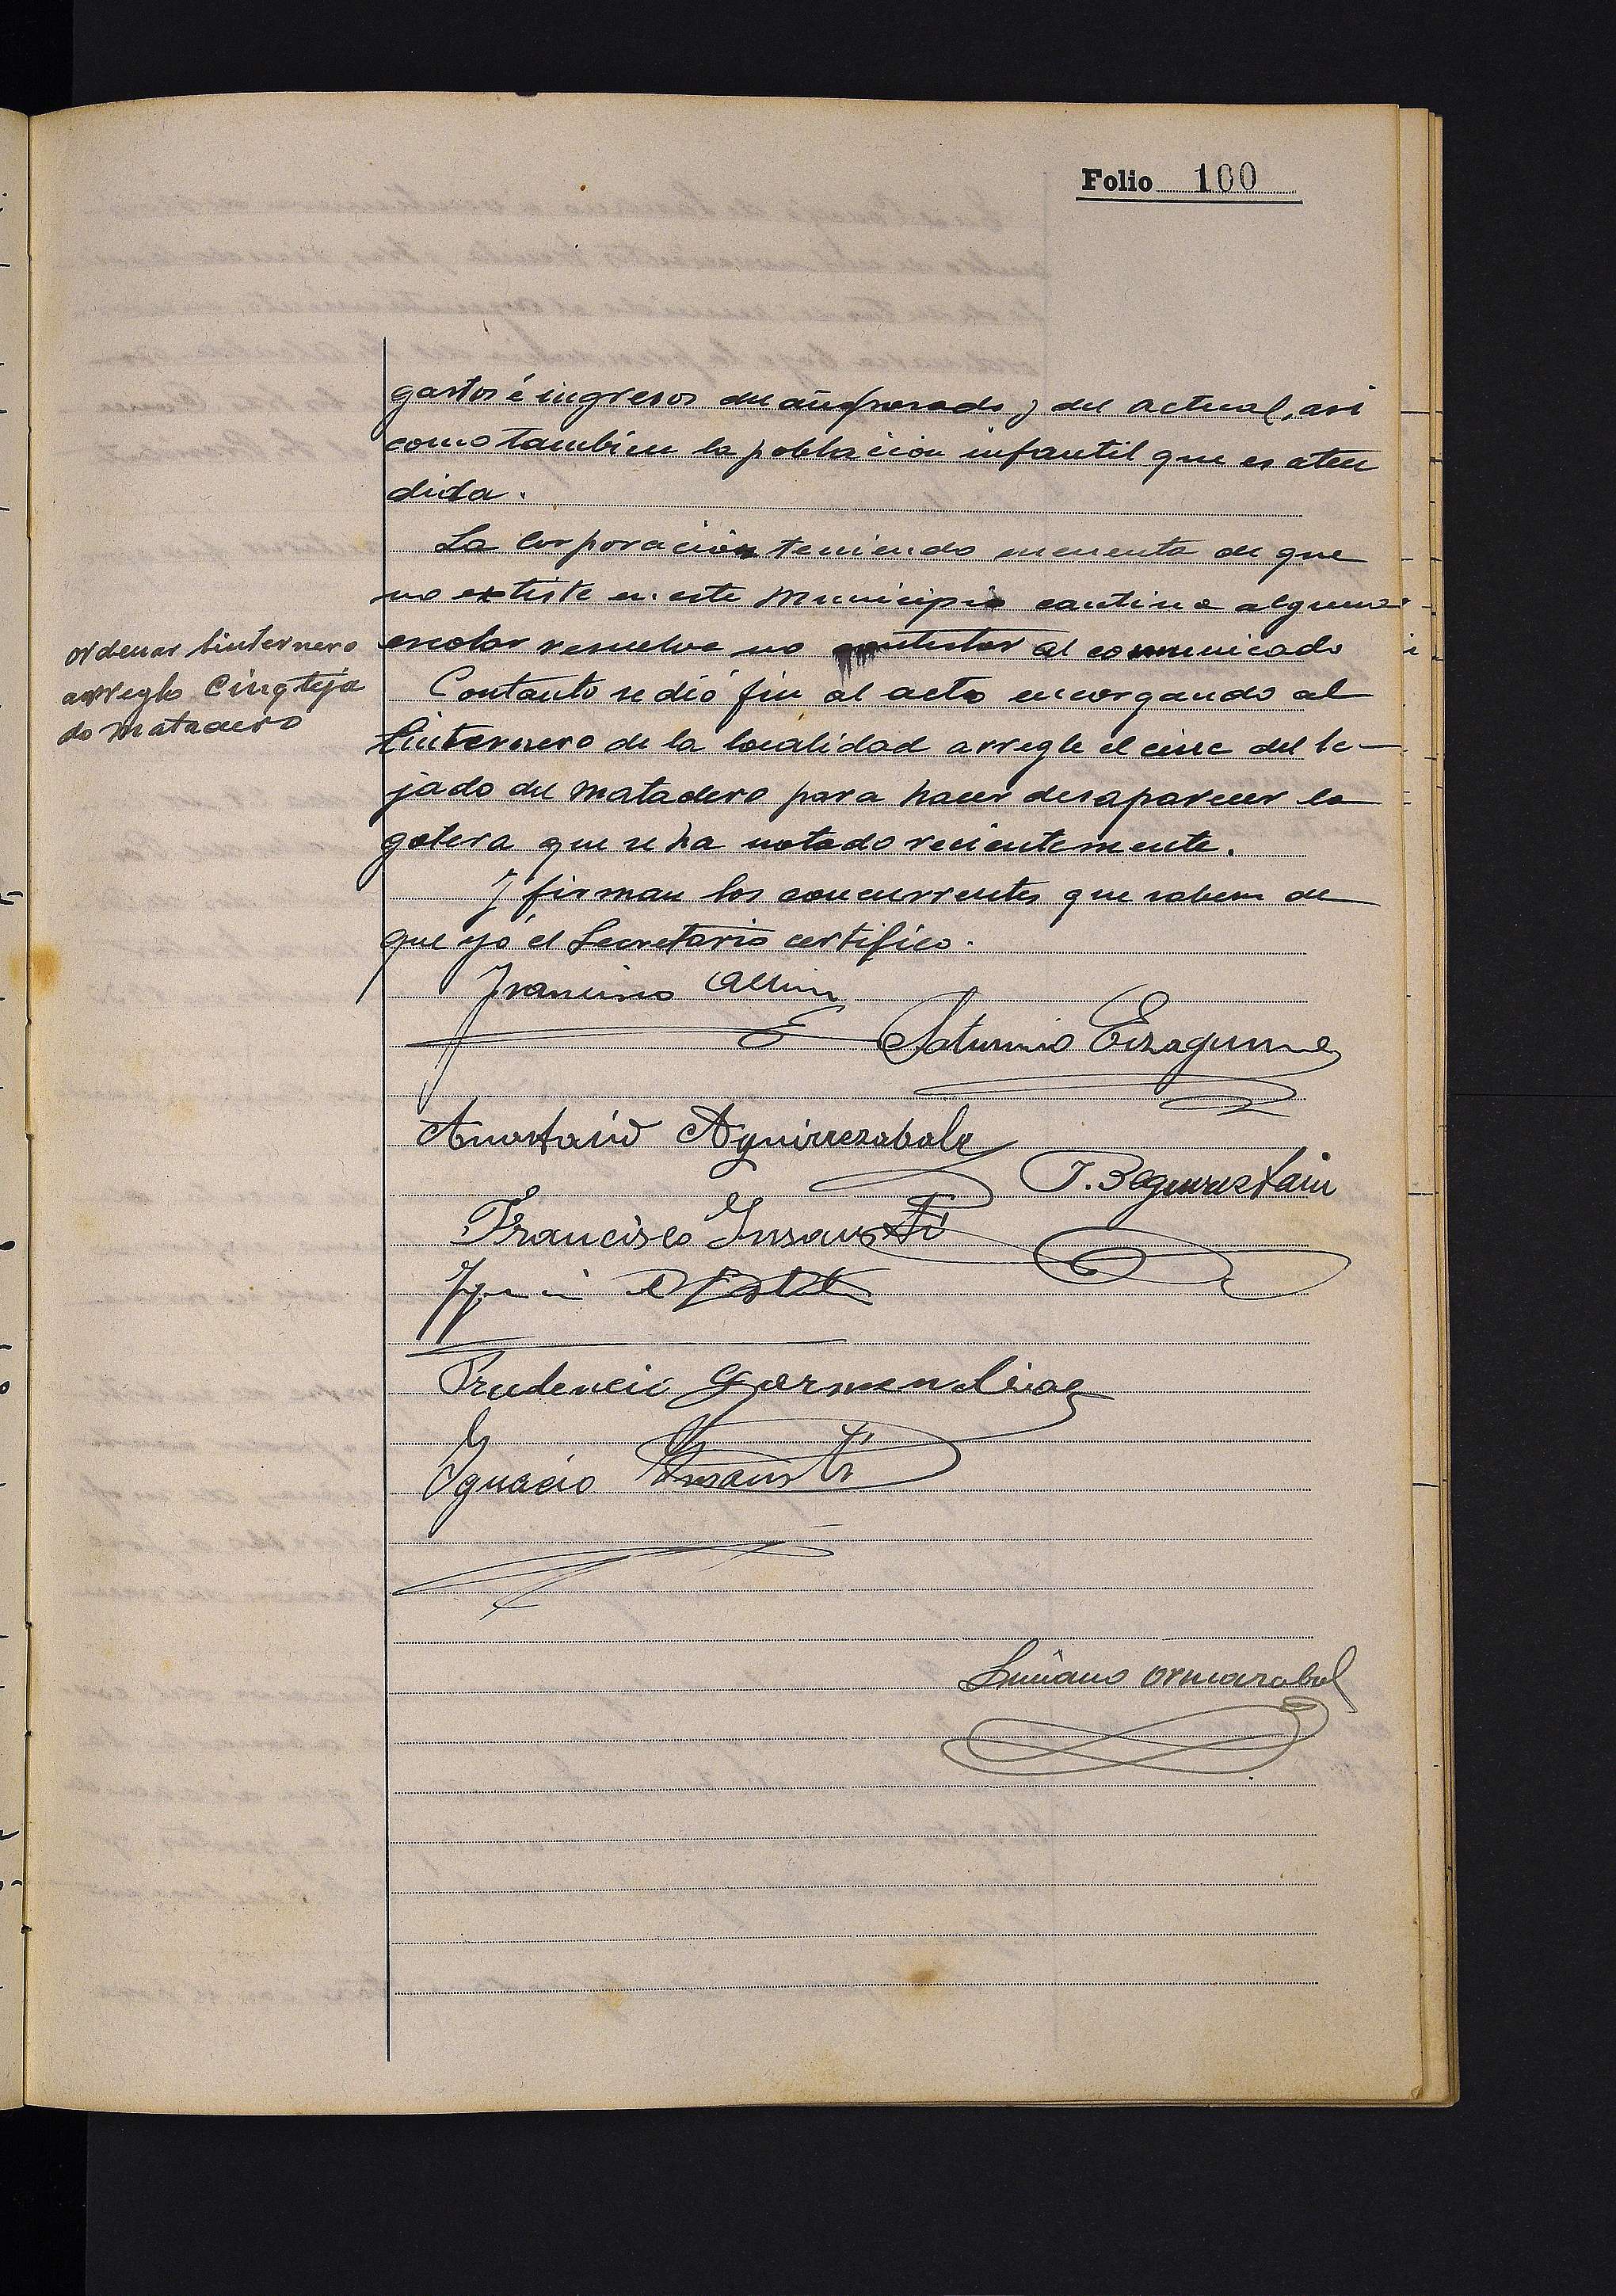 Folio 100
gastos é ingresos del año pasado y del actual, asi
como tambien la poblacion infantil que es aten
dida.
La corporacion teniendo en cuenta de que
no existe en este Municipio cantina alguna
escolar resuelve no contestar al comunicado
ordenar linternero
arreglo Cinq teja
do matadero
Contanto se dió fin al acto encargando al
linternero de la localidad arregle el cinc del te-
jado del matadero para hacer desaparecer la
gotera que se ha notado recientemente.
Y firman los concurrentes que saben de
que yo el Secretario certifico.
Francisco
Saturnino Eizaguirre
Anastasio Aguirrezabala
J. Beguiristain
Francisco Insausti
Prudencio Garmendia
Ignacio Insausti
Luciano Ormazabal